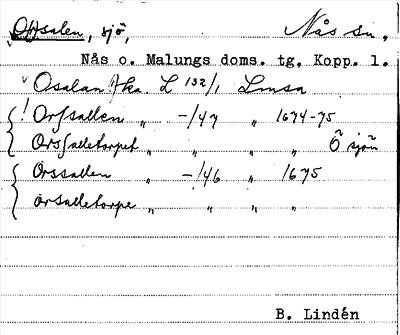 Orsalen, sjö, Nås sn.
Nås o. Malungs doms. tg, Kopp. l.
Osalan ka. L 132/1 Lmsa
! Orssallen „ -/47 „ 1674-75
Orssalletorpet „ „ „ „ Ö sjön
Orssallen „ -/46 „ 1675
orsalletorpe „ „ „ „
B. Lindén